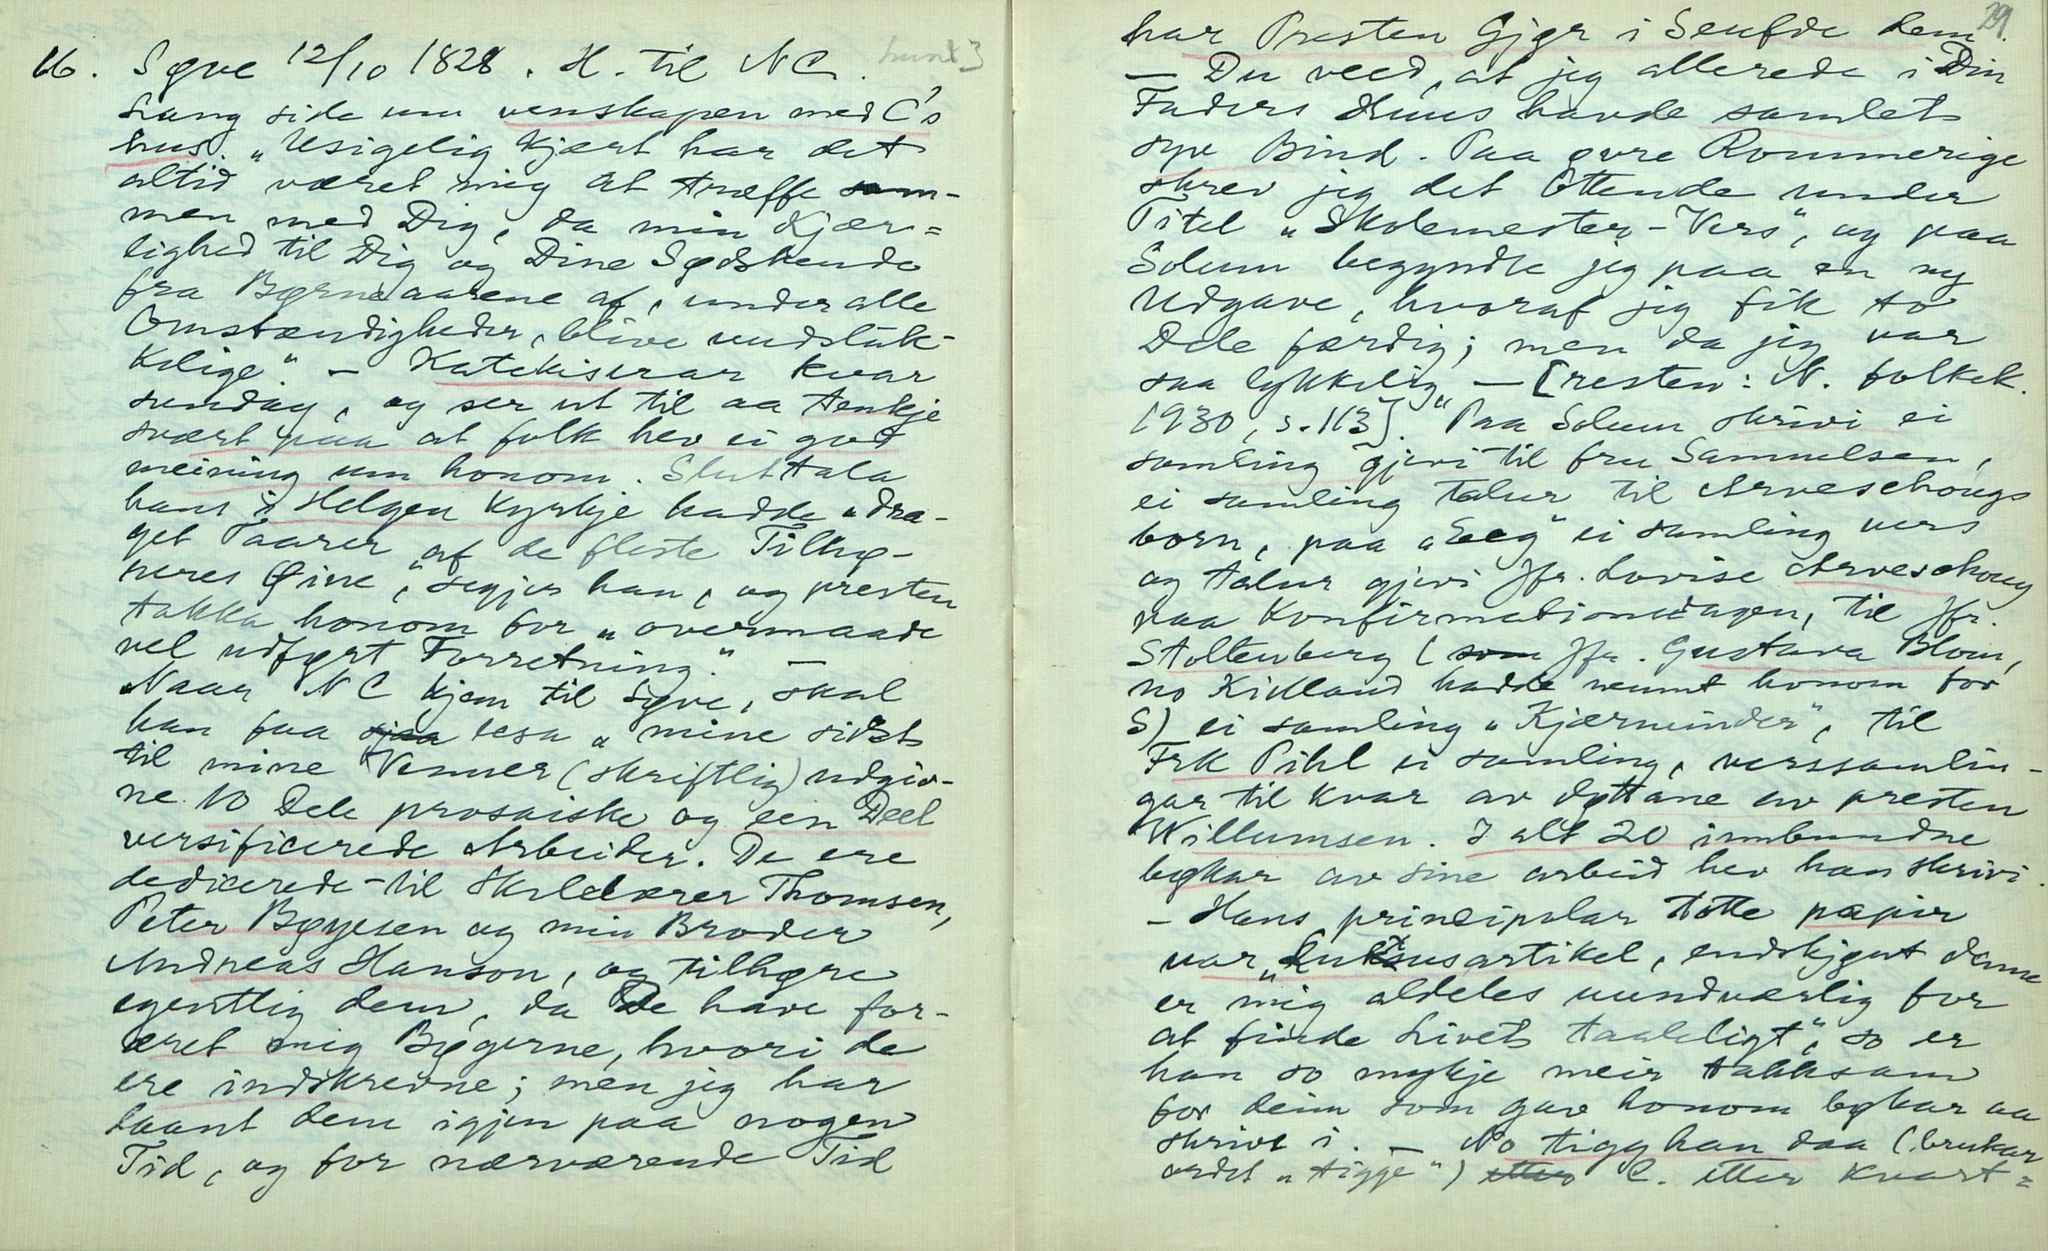 16. Søve 12/10 1828. H. til NC.
Lang side um venskapen med C's
hus. "Usigelig kjært har det
altid været mig at træffe sam-
men med Dig, da min Kjær=
lighed til Dig og Dine Sødskende
fra Børneaarene af, under alle
Omstændigheder, blive uudsluk-
kelige." - Katekiserar kvar
sundag, og ser ut til aa tenkje
svært paa at folk hev ei god
meining um honom. Sluttala
hans i Helgen kyrkje hadde "dra-
get Taarer af de fleste Tilhø-
reres Øine", segjer han, og presten
takka honom for "overmaade
vel udført Forretning." -
Naar NC kjem til Søve, skal
han faa sjaa lesa "mine sidst
til mine Venner (skriftlig) udgiv-
ne 10 Dele prosaiske og een Deel
versificerede Arbeider. De ere
dedicerede til Skolelærer Thomsen,
Peter Bøyesen og min Broder
Andreas Hanson, og tilhøre
egentlig dem, da De have for-
æret mig Bøgerne, hvori de
ere indskrevne; men jeg har
laant dem igjen paa nogen
Tid, og for nærværende Tid
29.
har Presten Gjør i Seufde dem.
- Du veed, at jeg allerede i Din
Faders Huus havde samlet
syv Bind. Paa øvre Rommerige
skrev jeg det Ottende under
Titel "Skolemester-Vers", og paa
Solum begyndte jeg paa en ny
Udgave, hvoraf jeg fik to
Dele færdig; men da jeg var
saa lykkelig" - [resten: N. folkek.
1930, s. 113]. "Paa Solum skrivi ei
samling gjevi til fru Samuelsen,
ei samling talur til Arveschougs
born, paa "Eeg" ei samling vers
og talur gjevi Jfr. Lovise Arveschoug
paa Konfirmationsdagen, til Jfr.
Stoltenberg (som Jfr. Gustava Blom,
no Kielland hadde nemnt honom for
S) ei samling "Kjærminder", til
Frk Pihl ei samling, verssamlin-
gar til kvar av døttane av presten
Willumsen. I alt 20 innbundne
bøkar av sine arbeid hev han skrivi.
- Hans principalar totte papir
var "Luksusartikel, endskjønt denne
er mig aldeles uundværlig for
at finde Livet taaleligt", so er
han so mykje meir takksam
for deim som gav honom bøkar aa
skrive i. - No tigg han daa (brukar
ordet "tigge") etter C. etter kvart=